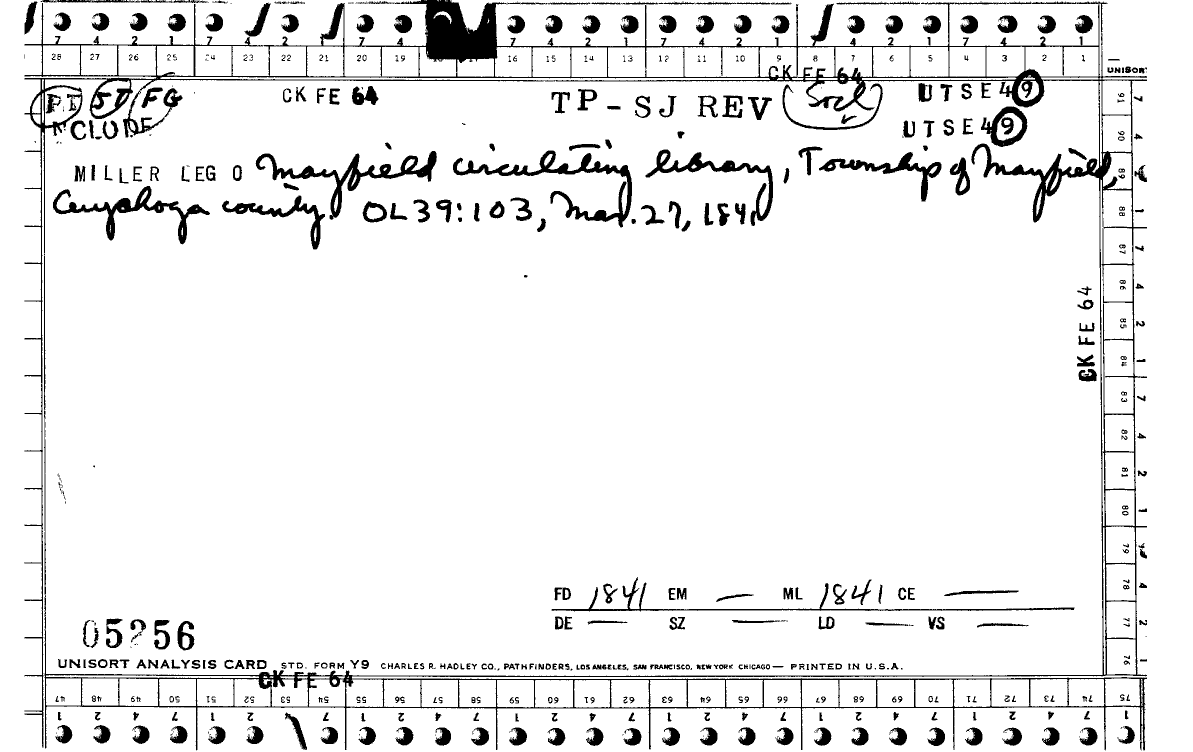 7 4 2 1 7 4 2 1 7 4 7 4 2 1 7 4 2 1 7 4 2 1 7 4 2 1
28 27 26 25 24 23 22 21 20 19 16 15 14 13 12 11 10 9 8 7 6 5 4 3 2 1
CK FE 64
UNISORT
PT ST FG CK FE 64 TP-SJ REV Socl UTSE49
INCLUDE UTSE49
MILLER LEG O Mayfield circulating library, Township of Mayfield,
Cuyahoga county. OL39:103, Mar. 27, 1841
CK FE 64
91 90 89 88 87 86 85 84 83 82 81 80 79 78 77 76
FD 1841 EM — ML 1841 CE —
DE — SZ — LD — VS —
05256
UNISORT ANALYSIS CARD STD. FORM Y9 CHARLES R. HADLEY CO., PATHFINDERS, LOS ANGELES, SAN FRANCISCO, NEW YORK CHICAGO — PRINTED IN U.S.A.
CK FE 64
47 48 49 50 51 52 53 54 55 56 57 58 59 60 61 62 63 64 65 66 67 68 69 70 71 72 73 74 75
1 2 4 7 1 2 4 7 1 2 4 7 1 2 4 7 1 2 4 7 1 2 4 7 1 2 4 7 1